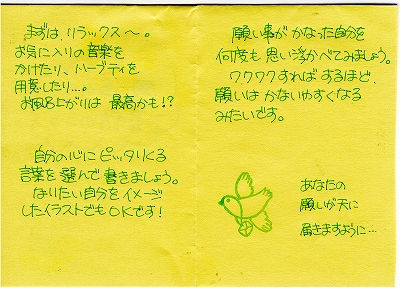 まずは、リラックス〜。
お気に入りの音楽を
かけたり、ハーブティを
用意したり…。
お風呂上がりは 最高かも!?
自分の心に ピッタリくる
言葉を 選んで 書きましょう。
なりたい自分を イメージ
したイラストでも OKです!
願い事が かなった自分を
何度も 思い浮かべてみましょう。
ワクワクすれば するほど、
願いは かないやすくなる
みたいです。
あなたの
願いが天に
届きますように…